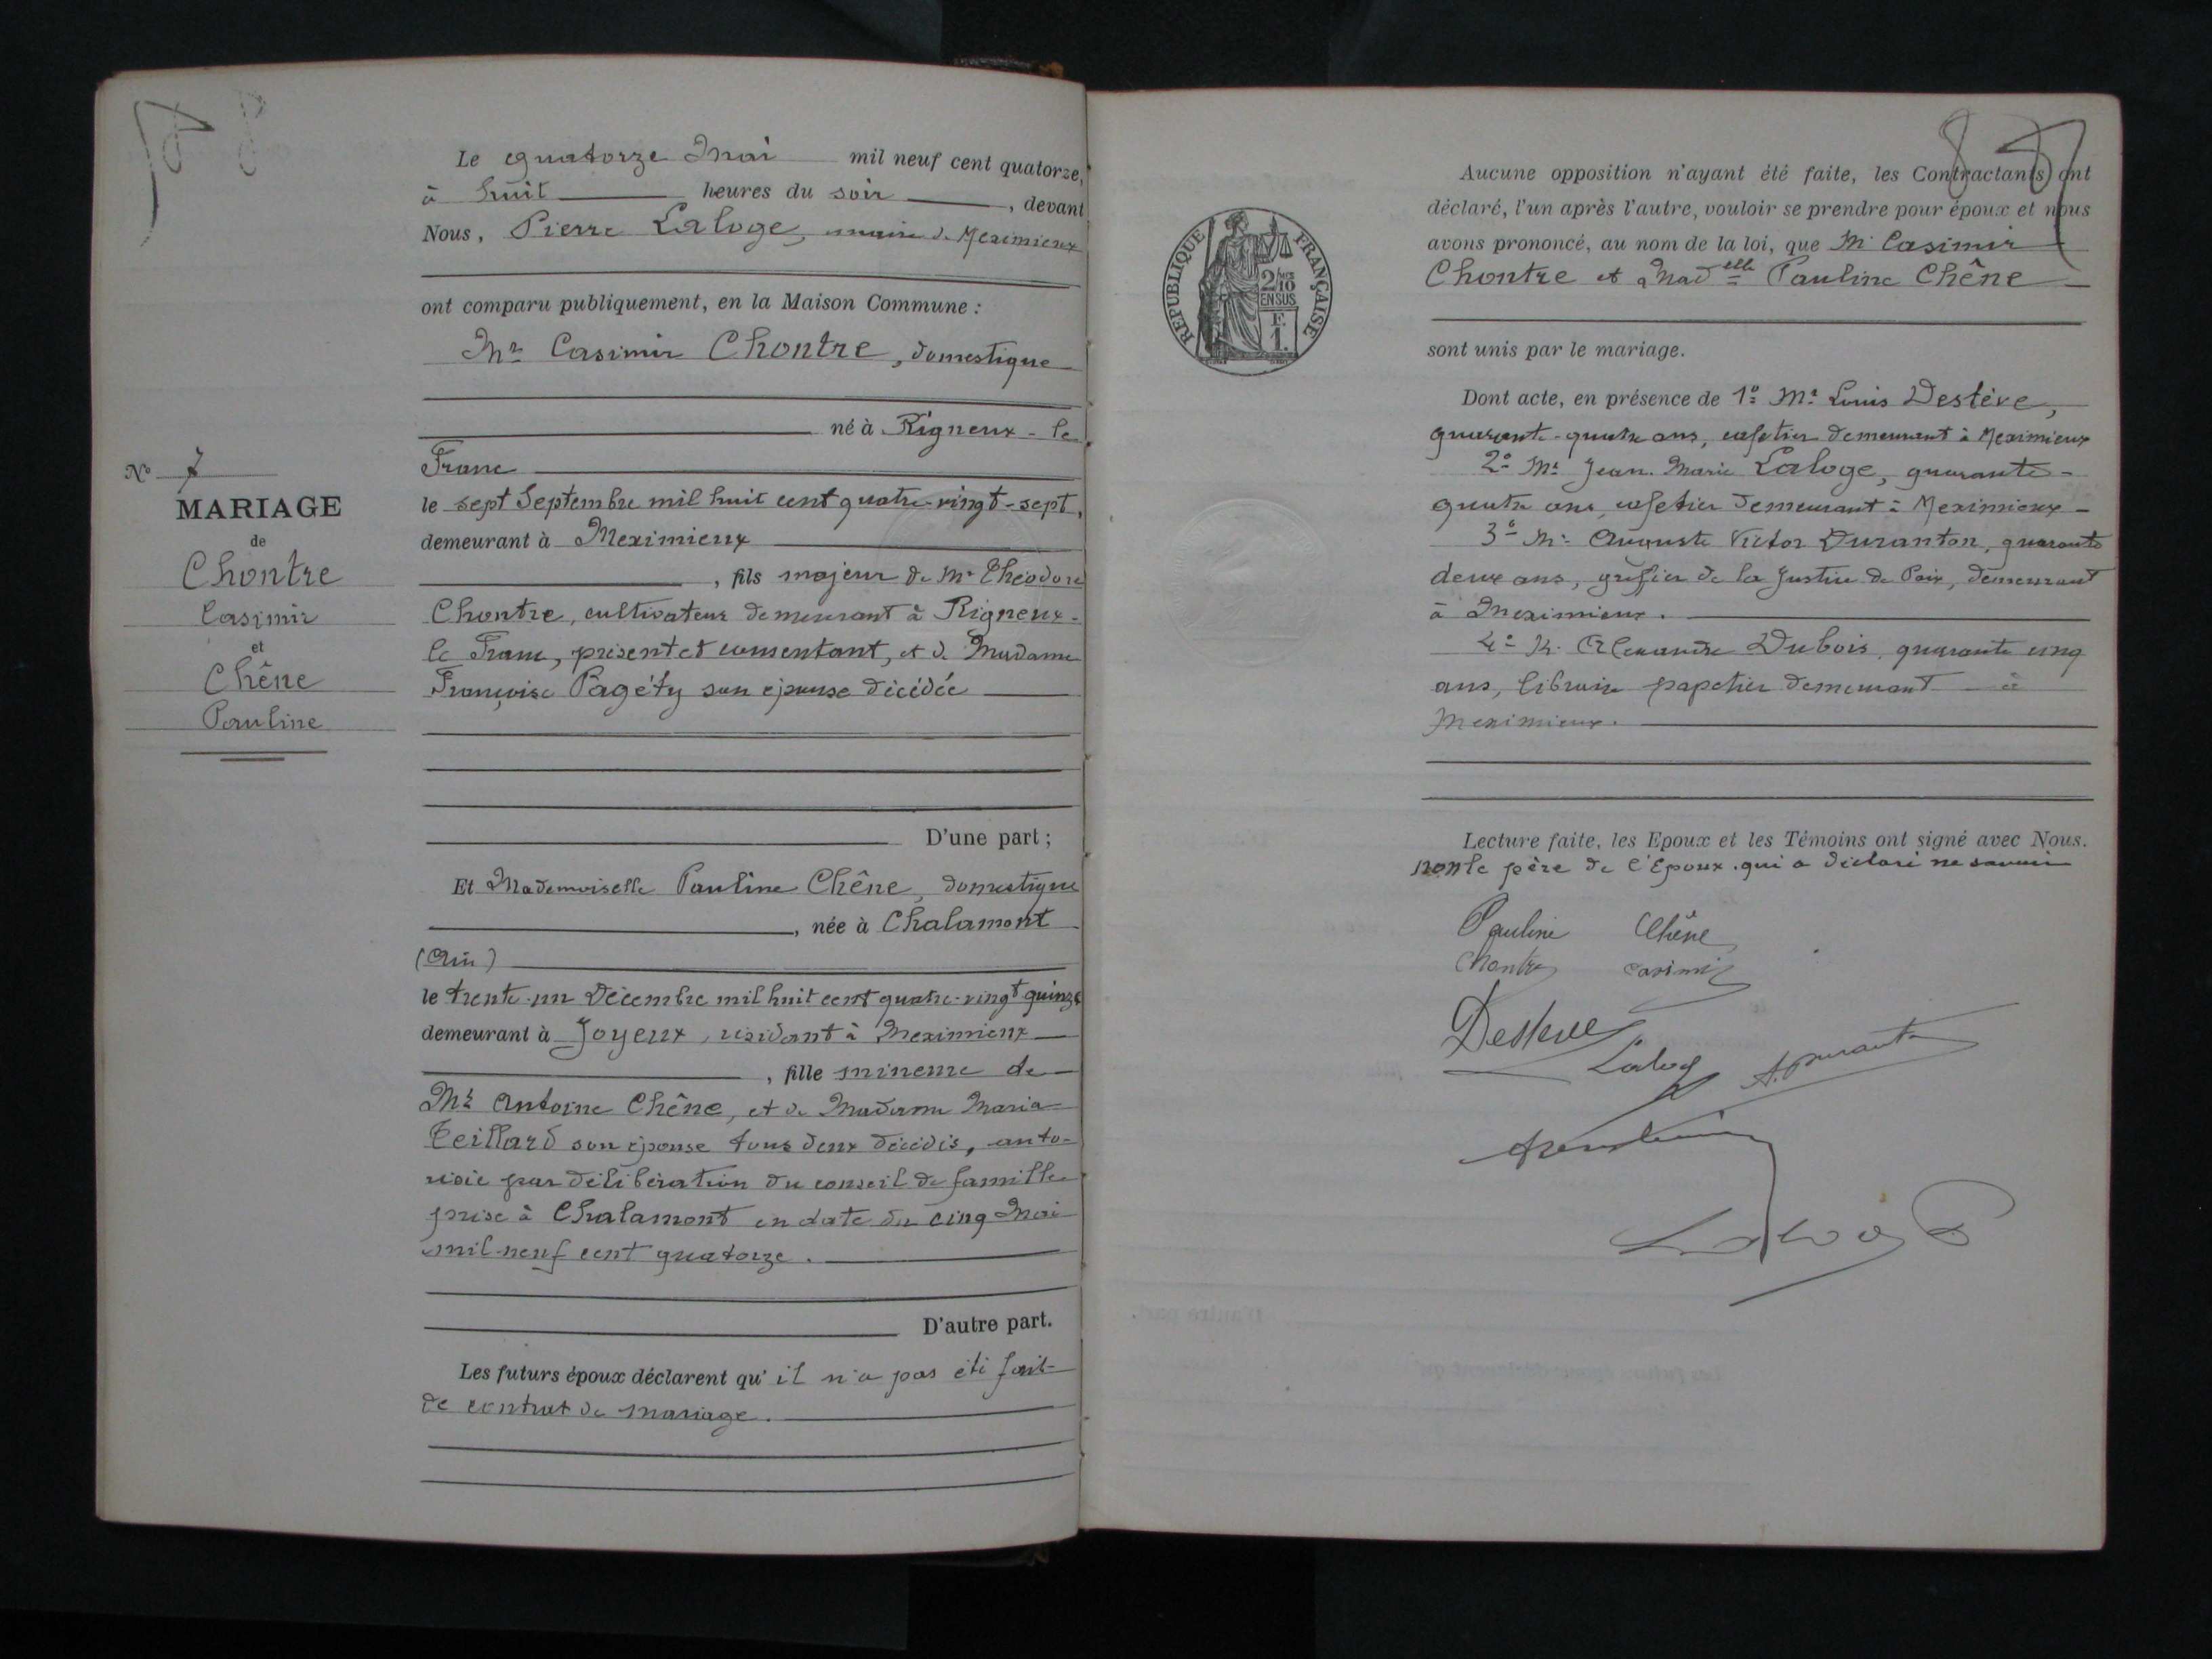 Le quatorze Mai mil neuf cent quatorze,
à huit heures du soir, devant
Nous, Pierre Laloge, maire de Meximieux
ont comparu publiquement, en la Maison Commune :
Mr Casimir Chontre, domestique
né à Rigneux-le
Franc
le sept Septembre mil huit cent quatre-vingt-sept,
demeurant à Meximieux
, fils majeur de Mr Théodore
Chontre, cultivateur demeurant à Rigneux-
le Franc, présent et consentant, et de Madame
Françoise Pagéty son épouse décédée
No 7
MARIAGE
de
Chontre
Casimir
et
Chêne
Pauline
D'une part ;
Et Mademoiselle Pauline Chêne, domestique
, née à Chalamont
(Ain)
le trente-un Décembre mil huit cent quatre-vingt quinze
demeurant à Joyeux, résidant à Meximieux
, fille mineure de
Mr Antoine Chêne, et de Madame Maria
Teillard son épouse tous deux décédés, auto-
risée par délibération du conseil de famille
prise à Chalamont en date du cinq Mai
mil neuf cent quatorze.
D'autre part.
Les futurs époux déclarent qu'il n'a pas été fait
de contrat de mariage.
REPUBLIQUE FRANÇAISE
2/10
EN SUS
F.
1.
Aucune opposition n'ayant été faite, les Contractants ont
déclaré, l'un après l'autre, vouloir se prendre pour époux et nous
avons prononcé, au nom de la loi, que Mr Casimir
Chontre et Madelle Pauline Chêne
sont unis par le mariage.
Dont acte, en présence de 1o Mr Louis Destève,
quarante-quatre ans, cafetier demeurant à Meximieux
2o Mr Jean-Marie Laloge, quarante-
quatre ans cafetier demeurant à Meximieux
3o Mr Auguste Victor Duranton, quarante
deux ans, greffier de la Justice de Paix, demeurant
à Meximieux.
4o M. Alexandre Dubois, quarante cinq
ans, libraire papetier demeurant à
Meximieux.
Lecture faite, les Epoux et les Témoins ont signé avec Nous.
non le père de l'Epoux qui a déclaré ne savoir
Pauline Chêne
Chontre Casimir
Desteve
Laloge A. Duranton